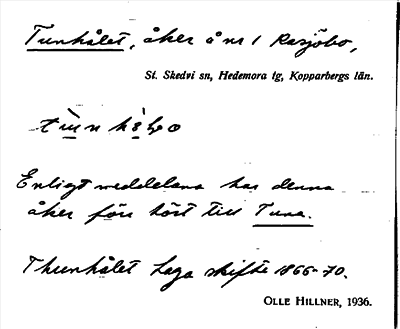 Tunhålet, åker å nr 1 Rasjöbo,
St. Skedvi sn, Hedemora tg, Kopparbergs län.
Enligt meddelana har denna
åker förr hört till Tuna.
Thunhålet Laga skifte 1866-70.
OLLE HILLNER, 1936.